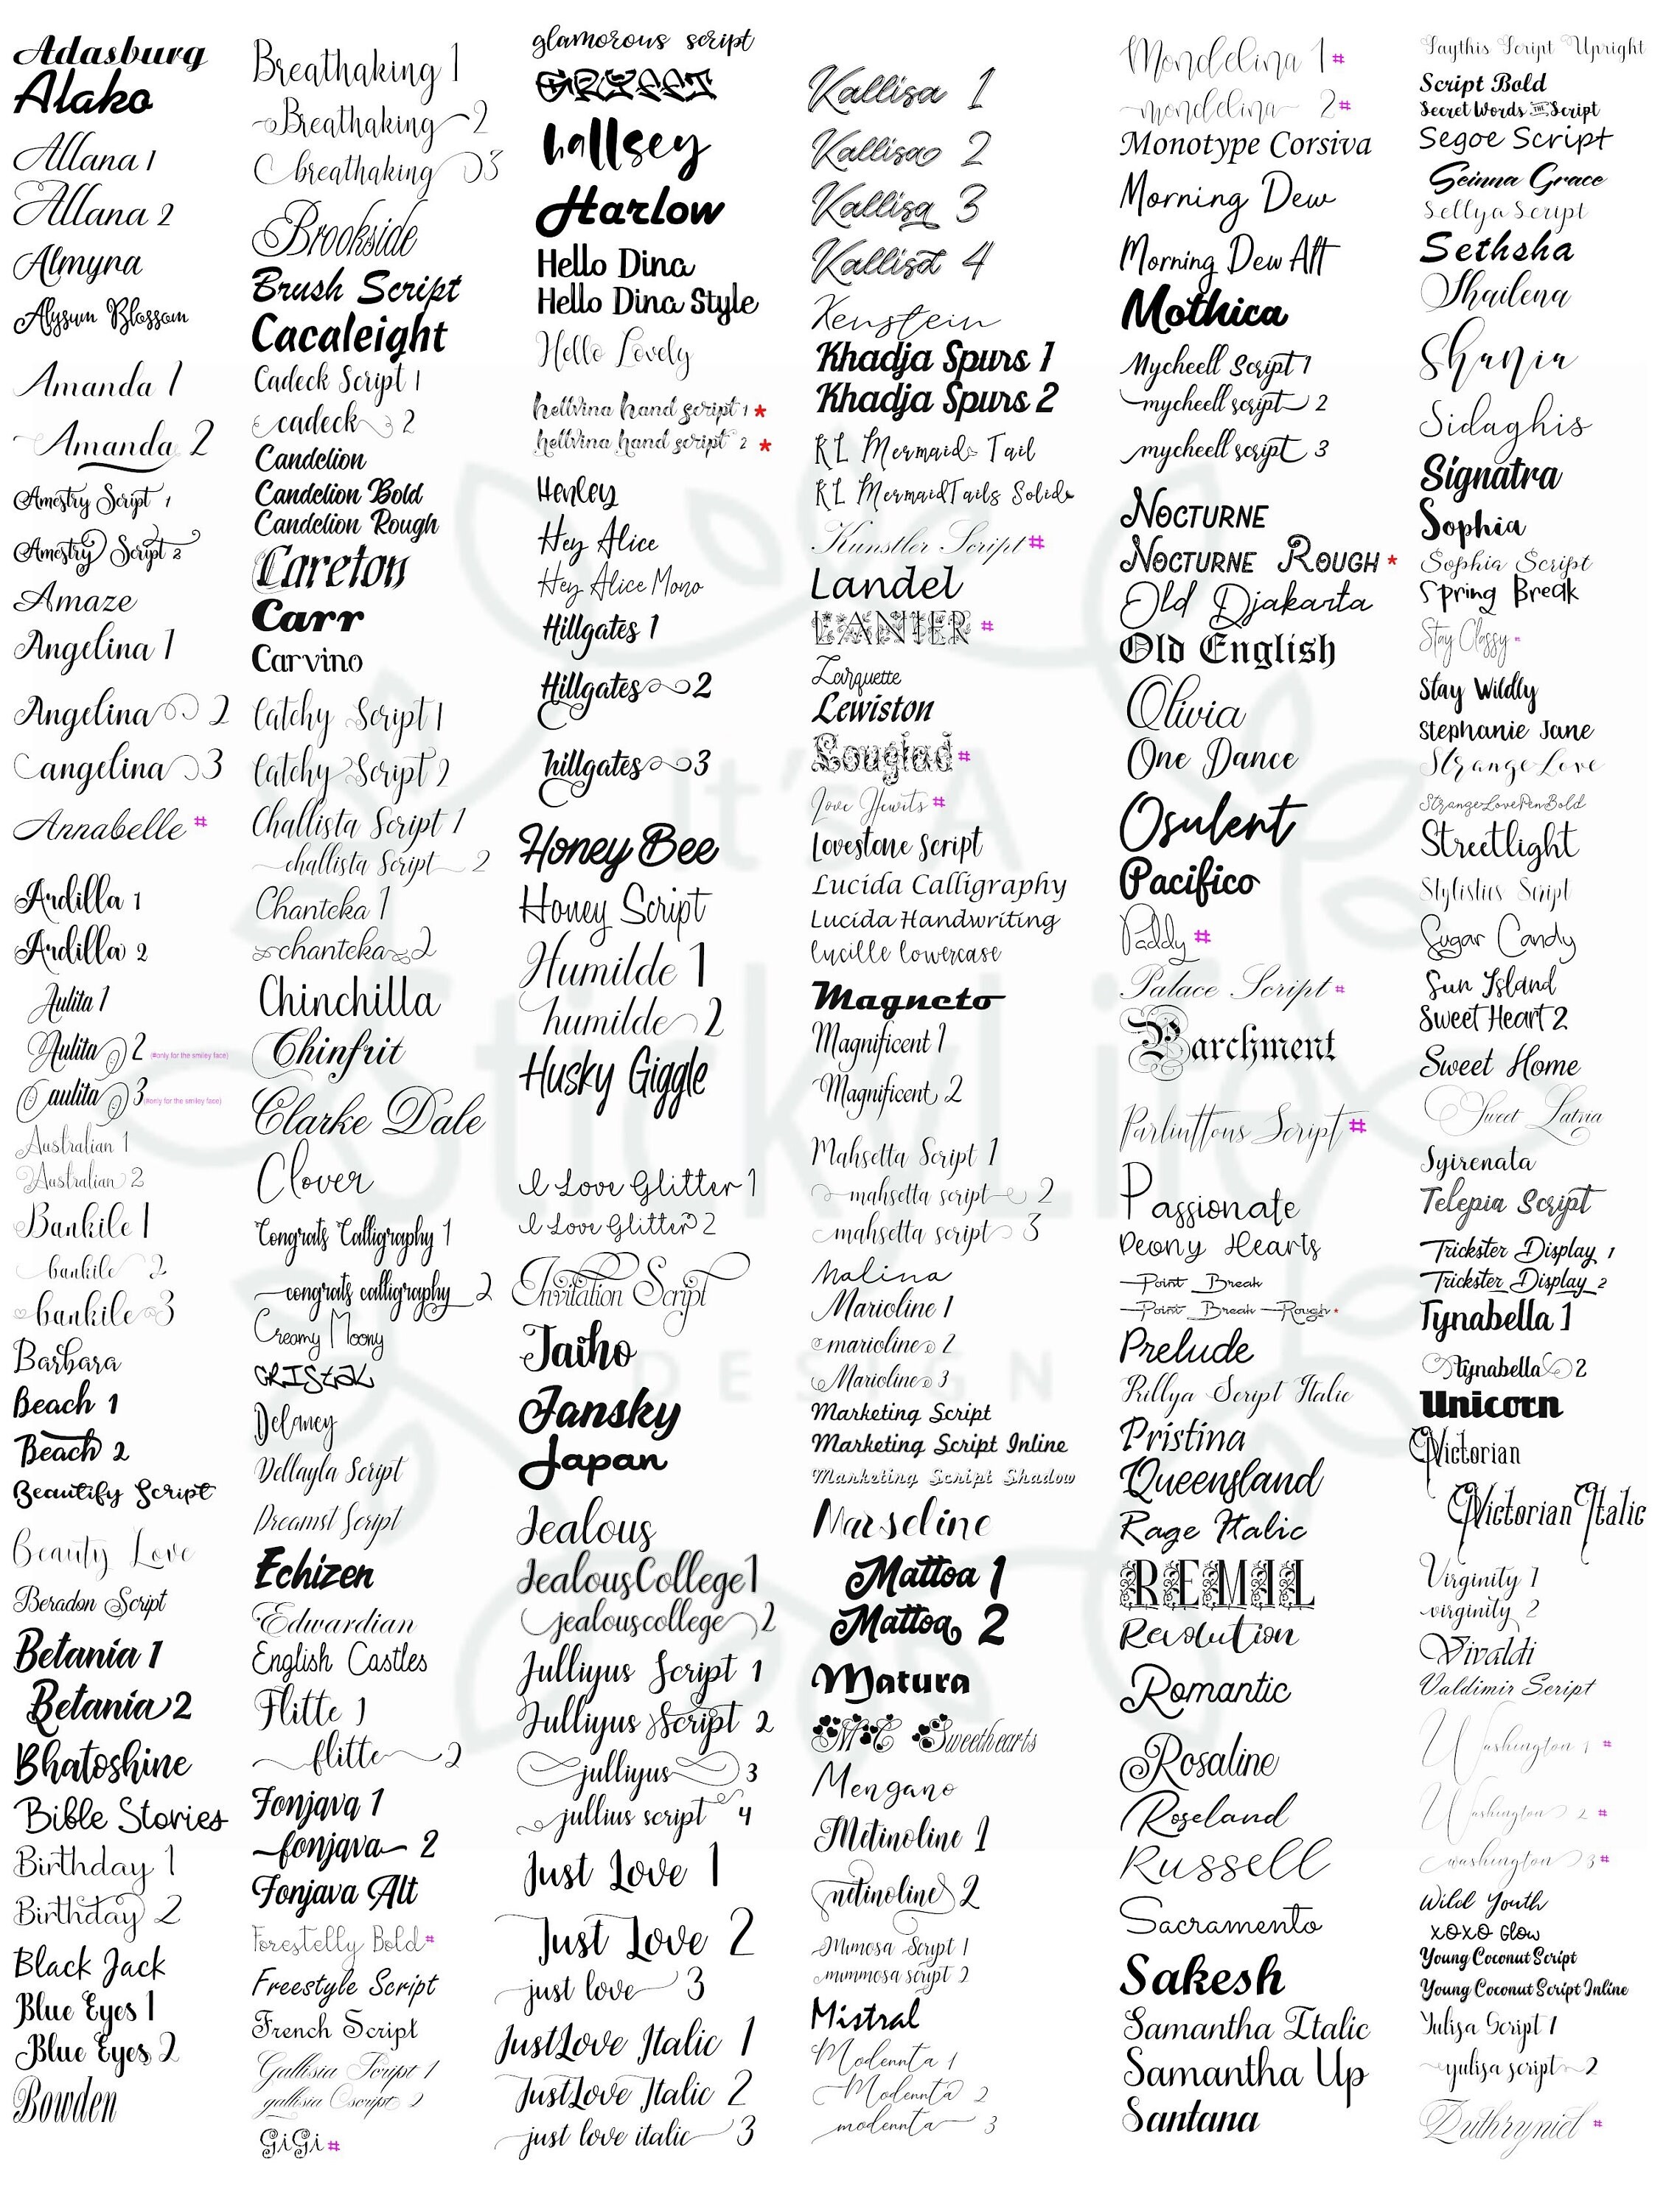 Adasburg
Alako
Allana 1
Allana 2
Almyra
Alysum Blossom
Amanda 1
Amanda 2
Amestry Script 1
Amestry Script 2
Amaze
Angelina 1
Angelina 2
angelina 3
Annabelle #
Ardilla 1
Ardilla 2
Aulita 1
Aulita 2 (#only for the smiley face)
aulita 3 (#only for the smiley face)
Australian 1
Australian 2
Bankile 1
bankile 2
bankile 3
Barbara
Beach 1
Beach 2
Beautify Script
Beauty Love
Beradon Script
Betania 1
Betania 2
Bhatoshine
Bible Stories
Birthday 1
Birthday 2
Black Jack
Blue Eyes 1
Blue Eyes 2
Bowden
Breathaking 1
Breathaking 2
breathaking 3
Brookside
Brush Script
Cacaleight
Cadeck Script 1
cadeck 2
Candelion
Candelion Bold
Candelion Rough
Careton
Carr
Carvino
Catchy Script 1
Catchy Script 2
Challista Script 1
challista Script 2
Chanteka 1
chanteka 2
Chinchilla
Chinfrit
Clarke Dale
Clover
Congrats Calligraphy 1
congrats calligraphy 2
Creamy Moony
CRISTAL
Delaney
Dellayla Script
Dreamst Script
Echizen
Edwardian
English Castles
Flitte 1
flitte 2
Fonjava 1
fonjava 2
Fonjava Alt
Forestelly Bold #
Freestyle Script
French Script
Gallisia Script 1
gallisia Cscript 2
GiGi #
glamorous script
GRYFFT
hallsey
Harlow
Hello Dina
Hello Dina Style
Hello Lovely
hellvina hand script 1 *
hellvina hand script 2 *
Henley
Hey Alice
Hey Alice Mono
Hillgates 1
Hillgates 2
hillgates 3
Honey Bee
Honey Script
Humilde 1
humilde 2
Husky Giggle
I Love Glitter 1
I Love Glitter 2
Invitation Script
Jaiho
Jansky
Japan
Jealous
JealousCollege 1
jealouscollege 2
Julliyus Script 1
Julliyus Script 2
julliyus 3
jullius script 4
Just Love 1
Just Love 2
just love 3
JustLove Italic 1
JustLove Italic 2
just love italic 3
Kallisa 1
Kallisa 2
Kallisa 3
Kallisa 4
Kenstein
Khadja Spurs 1
Khadja Spurs 2
KL Mermaids Tail
KL MermaidTails Solids
Kunstler Script #
Landel
LANIER #
Larquette
Lewiston
Souglad #
Love Hewits #
Lovestone Script
Lucida Calligraphy
Lucida Handwriting
lucille lowercase
Magneto
Magnificent 1
Magnificent 2
Mahsetta Script 1
mahsetta script 2
mahsetta script 3
Malina
Marioline 1
marioline 2
Marioline 3
Marketing Script
Marketing Script Inline
Marketing Script Shadow
Marseline
Mattoa 1
Mattoa 2
Matura
MC Sweethearts
Mengano
Metinoline 1
metinoline 2
Mimosa Script 1
mimmosa script 2
Mistral
Modennta 1
Modennta 2
modennta 3
Mondelina 1 #
mondelina 2 #
Monotype Corsiva
Morning Dew
Morning Dew Alt
Mothica
Mycheell Script 1
mycheell script 2
mycheell script 3
Nocturne
Nocturne Rough *
Old Djakarta
Old English
Olivia
One Dance
Osulent
Pacifico
Paddy #
Palace Script #
Parchment
Parlinttons Script #
Passionate
Peony Hearts
Point Break
Point Break Rough *
Prelude
Prillya Script Italic
Pristina
Queensland
Rage Italic
REMIL
Revolution
Romantic
Rosaline
Roseland
Russell
Sacramento
Sakesh
Samantha Italic
Samantha Up
Santana
Saythis Script Upright
Script Bold
Secret Words THE Script
Segoe Script
Seinna Grace
Sellya Script
Sethsha
Shailena
Shania
Sidaghis
Signatra
Sophia
Sophia Script
Spring Break
Stay Classy #
Stay Wildly
Stephanie Jane
StrangeLove
StrangeLovePenBold
Streetlight
Stylistics Script
Sugar Candy
Sun Island
Sweet Heart 2
Sweet Home
Sweet Latria
Syirenata
Telepia Script
Trickster Display 1
Trickster Display 2
Tynabella 1
tynabella 2
Unicorn
Victorian
Victorian Italic
Virginity 1
virginity 2
Vivaldi
Valdimir Script
Washington 1 #
Washington 2 #
washington 3 #
Wild Youth
XOXO Glow
Young Coconut Script
Young Coconut Script Inline
Yulisa Script 1
yulisa script 2
Zuthryniel #
It's A
StickLife
DESIGN